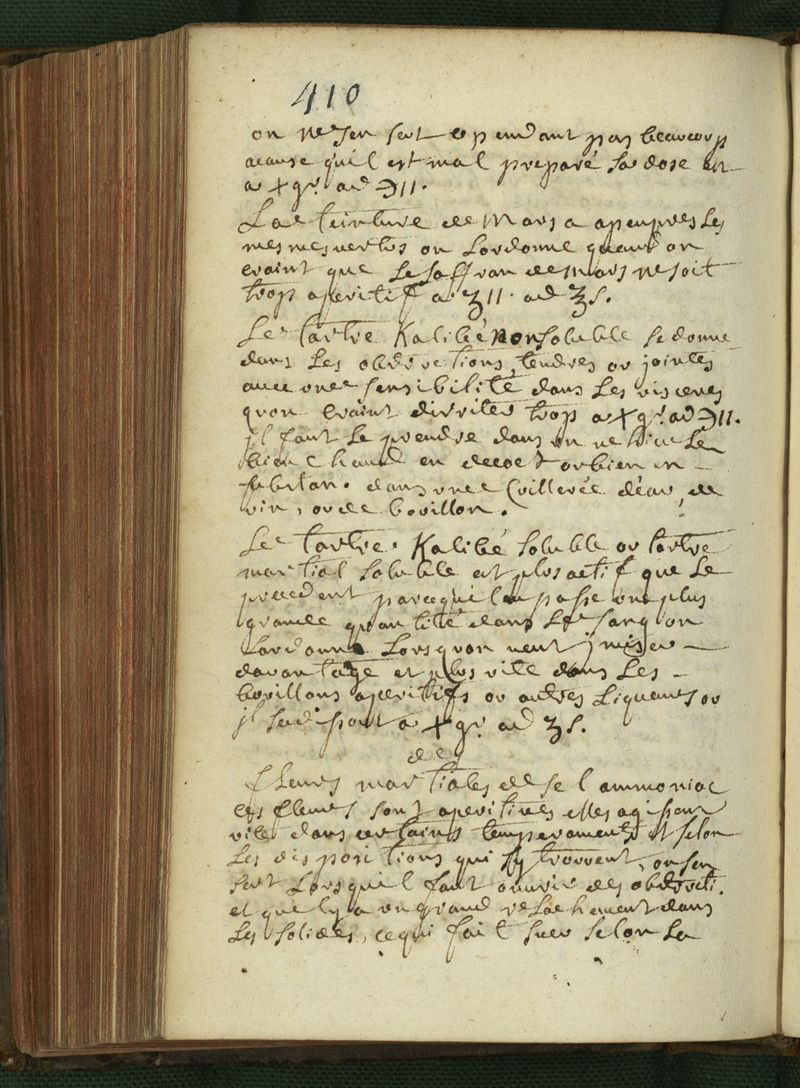 410
on ne sen sert cependant pas beaucoup
acause quil est mal preparé sa dose est
a X gr. ad ℈II.
La teinture de Mars a apeupres les
mesmes vertus on Lordonne quand on
craint que Le saffran de Mars ne soit
trop aperitif a ʒII. ad ʒs.
Le tartre Kalibé non soluble se donne
dans Les obstructions, tendres ou jointes
avec une sensibilité dans Les visceres
quon craint dirriter trop a X gr. ad ℈II.
jl faut Le prendre dans un vehicule
bien chaud en decoct ou bien en
substan. dans une Cuillerée déau, de
vin, ou de bouillon.
Le tartre Kalibé soluble ou tartre
martial soluble est plus actif que Le
precedent parcequil en passe une plus
grande quantité dans Le sang on
Lordonne Lorsquon veut
davantage et plus vite dans Les
bouillons aperitifs ou autres Liqueurs ou
jl se dissout a X gr. ad ʒs.
des
fleurs martiales de sel ammoniac
Les fleurs sont aperitives elles agissent
vite dans certains temperaments et selon
Les dispositions qui sy trouvent, on sen
sert Lorsquil faut ouvrir des obstructi.
et quely a un grand relachement dans
Les solides, ce qui fait suer selon La